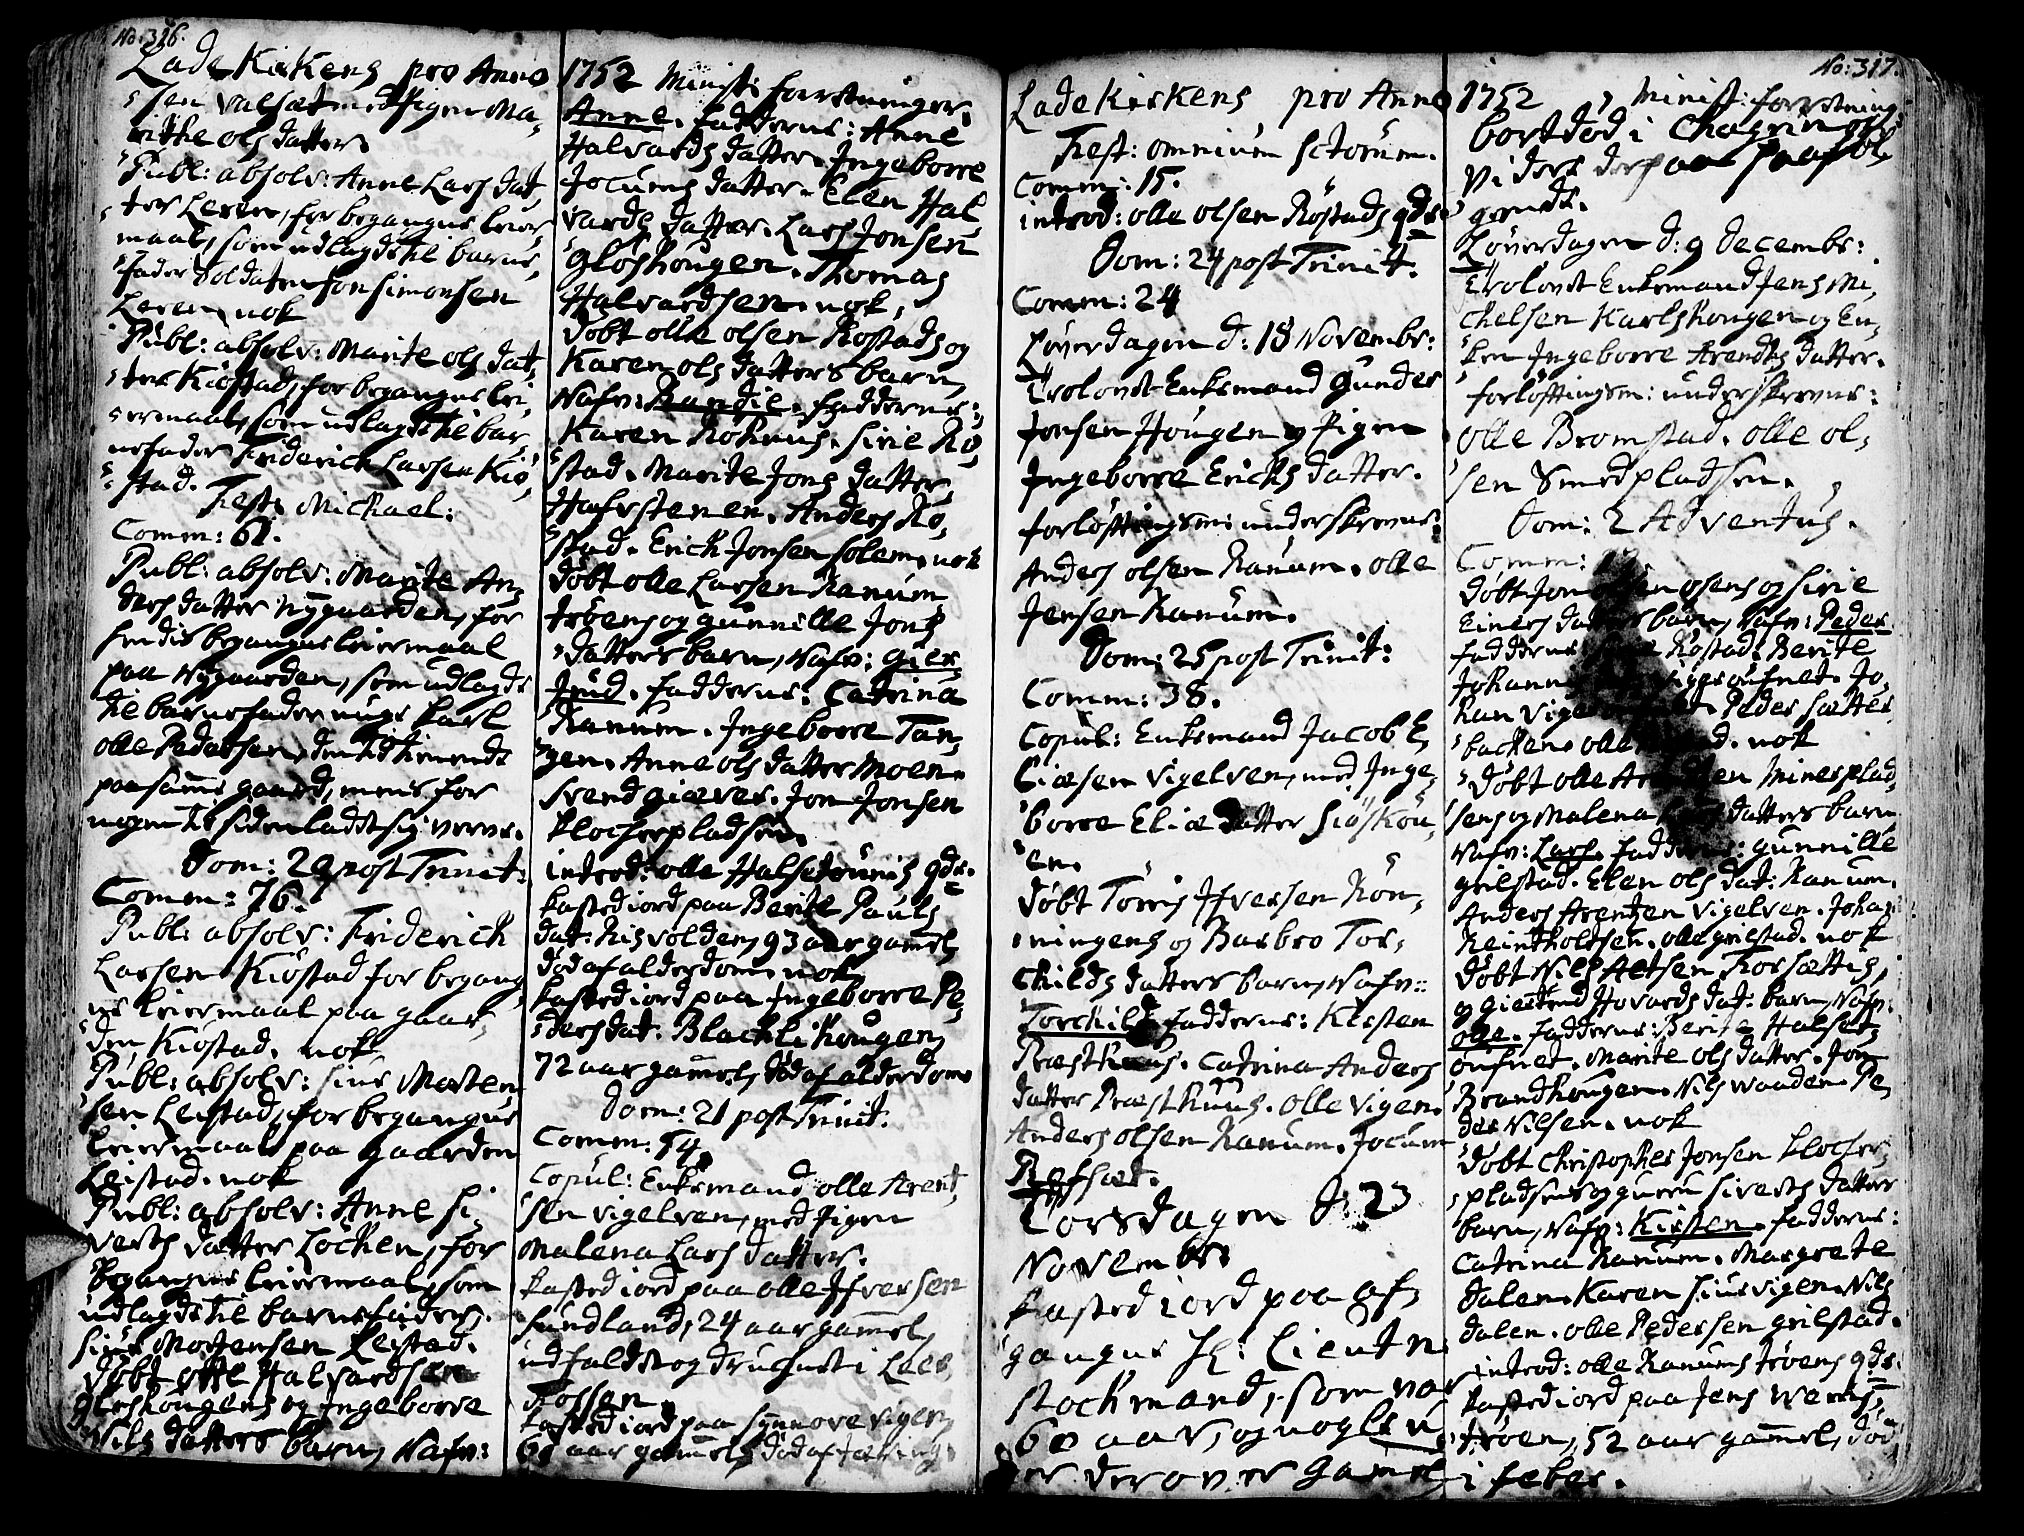 No: 316.
Lade Kirkens pro Anno
sen Valset med Pigen Ma,
rithe ols datter.
Publ: absolv: Anne Lars dat
ter Leren, for begangne leier
maal, som udlagde til barne,
fader Soldaten Jon Simonsen
Leren, nok
Publ: absolv: Marite ols dat,
ter Kiøstad, for begangne lei,
ermaal, som udlagde til bar,
nefader Friderich Larsen Kiø,
stad.
Fest: Michael:
Comm: 61.
Publ: absolv: Marite An,
ders datter Nygaarden, for
hendis begangne leiermaal
paa Nygaarden, som udlagde
til barnefader unge karl
olle Pedersen, den tid tienende
paa samme gaard, mens for
nogen tid siden ladt sig verve.
Dom: 20 post Trinit:
Comm: 76.
Publ: absolv: Friderich
Larsen Kiøstad for begang
ne leiermaal paa gaar,
den Kiøstad. nok
Publ: absolv: Siur Morten
sen Leistad, for begangne
leiermaal paa gaarden
Leistad. nok
Publ: absolv: Anne Si,
verts datter Løcken, for
begangne leiermaal, som
udlagde til barnefader,
Siur Mortensen Leistad.
døbt olle Halvardsen
Gløshougens og Ingeborre
Nils datters barn, Nafn:
1752 Minist: forretninger
Anne. fadderne: Anne
Halvards datter. Ingeborre
Jocums datter. Elen Hal
vards datter. Lars Jonsen
Gløshougen. Thomas
Halvardsen. nok,
døbt olle olsen Rostads og
Karen ols datters barn,
Nafn: Randie. fadderne:
Karen Rohnus. Sirie Ro,
stad. Marite Jons datter
Hafrstenen. Anders Ro,
stad. Erick Jonsen Solem. nok
døbt olle Larsen Ranum
trøens og Gunnille Jons
datters barn, Nafn: Gier
trud. fadderne: Catrina
Ranum. Ingeborre Tan,
gen. Anne ols datter Moen.
Svend Giæver. Jon Jonsen
Klocherpladsen.
introd: olle Halsetrønis qde.
kasted iord paa Berite Pauls
dat: Risvolden, 93 aar gamel
død af alderdom. nok
kasted iord paa Ingeborre Pe,
ders dat: Blachlihougen,
72 aar gamel, død af alderdom
Dom: 21 post Trinit.
Comm: 54.
Copul: Enkemand olle Arent,
sen Vigelven, med Pigen
Malena Lars datter.
kasted iord paa olle Ifversen
Sundland, 24 aar gamel,
udfalden og druchnet i Leer
Fossen.
kasted iord paa Synnove Vigen,
60 aar gamel, død af tæring.
Lade Kirkens pro Anno
Fest: omnium sctorum.
Comm: 15.
introd: olle olsen Rostads qde
Dom: 24 post Trinit:
Comm: 24
Løverdagen d: 18 Novembr:
Trolovet Enkemand Gunder
Jonsen Hougen og Pigen
Ingeborre Ericks datter.
forløftningsm: underskrevne:
Anders olsen Ranum. olle
Jensen Ranum.
Dom: 25 post Trinit:
Comm: 38.
Copul: Enkemand Jacob E,
liæsen Vigelven, med Inge,
borre Eliæ datter Siøskou,
en.
døbt Tørris Ifversen Røn,
ningens og Barbro Tor,
childs datters barn, Nafn:
Torchild. fadderne: Kirsten
Præsthuus. Catrina Anders
datter Præsthuus. olle Vigen.
Anders olsen Ranum. Jocum
Refset.
Torsdagen d: 23
Novembr:
kasted iord paa af,
gangne Hr: Lieutn:
Stockmand, som var
60 aar, og nogle
er derover gamel
No: 317.
1752 Minist: forretning
bortdød i
Videre
grundt.
Løverdagen d: 9 Decembr:
Trolovet Enkemand Jens Mi,
chelsen Karlshougen og En,
ken Ingeborre Arendts datter.
forløftningsm: underskrevne:
olle Bromstad. olle ol,
sen Smedpladsen.
Dom: 2 Adventus.
Comm:
døbt Jon olsen osens og Sirie
Einers datters barn, Nafn: Peder
fadderne: Rostad. Berite
Johann Vigesøufnet. Jo,
han Vige Peder Sætter
bachen. olle nok
døbt olle Arentsen Minerplad
sens og Malena Lars datters barn
Nafn: Lars. fadderne: Gunnille
Grilstad. Elen ols dat: Ranum.
Anders Arentzen Vigelven. Johan
Reintholdsen. olle Grilstad. nok
døbt Nils Altsen Korsættis,
og Giertrud Hovards dat: barn, Nafn:
olle. fadderne: Berite Halset
øufnet. Marite ols datter. Jon
Brandhougen. Nils Waaden. Pe
der Nilsen. nok
døbt Christopher Jonsen Klocher,
pladsens og Guru Siverts datter
barn, Nafn: Kirsten. fadderne:
Catrina Ranum. Margrete
Dalen. Karen Siurvigen. Nils
Dalen. olle Pedersen Grilstad.
introd: olle Ranums trøens qde:
kasted iord paa Jens Werks,
trøen, 52 aar gamel, død
i feber.